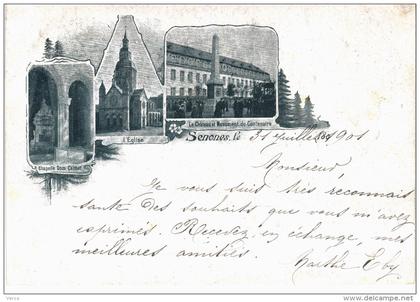 Le Château et Monument du Centenaire
l'Eglise
La Chapelle Dom Calmet
Senones, le 31 Juillet 1901
Monsieur,
Je vous suis très reconnais
sante des souhaits que vous m'avez
exprimés. Recevez, en échange, mes
meilleures amitiés.
Marthe Eby
www.delcampe.net